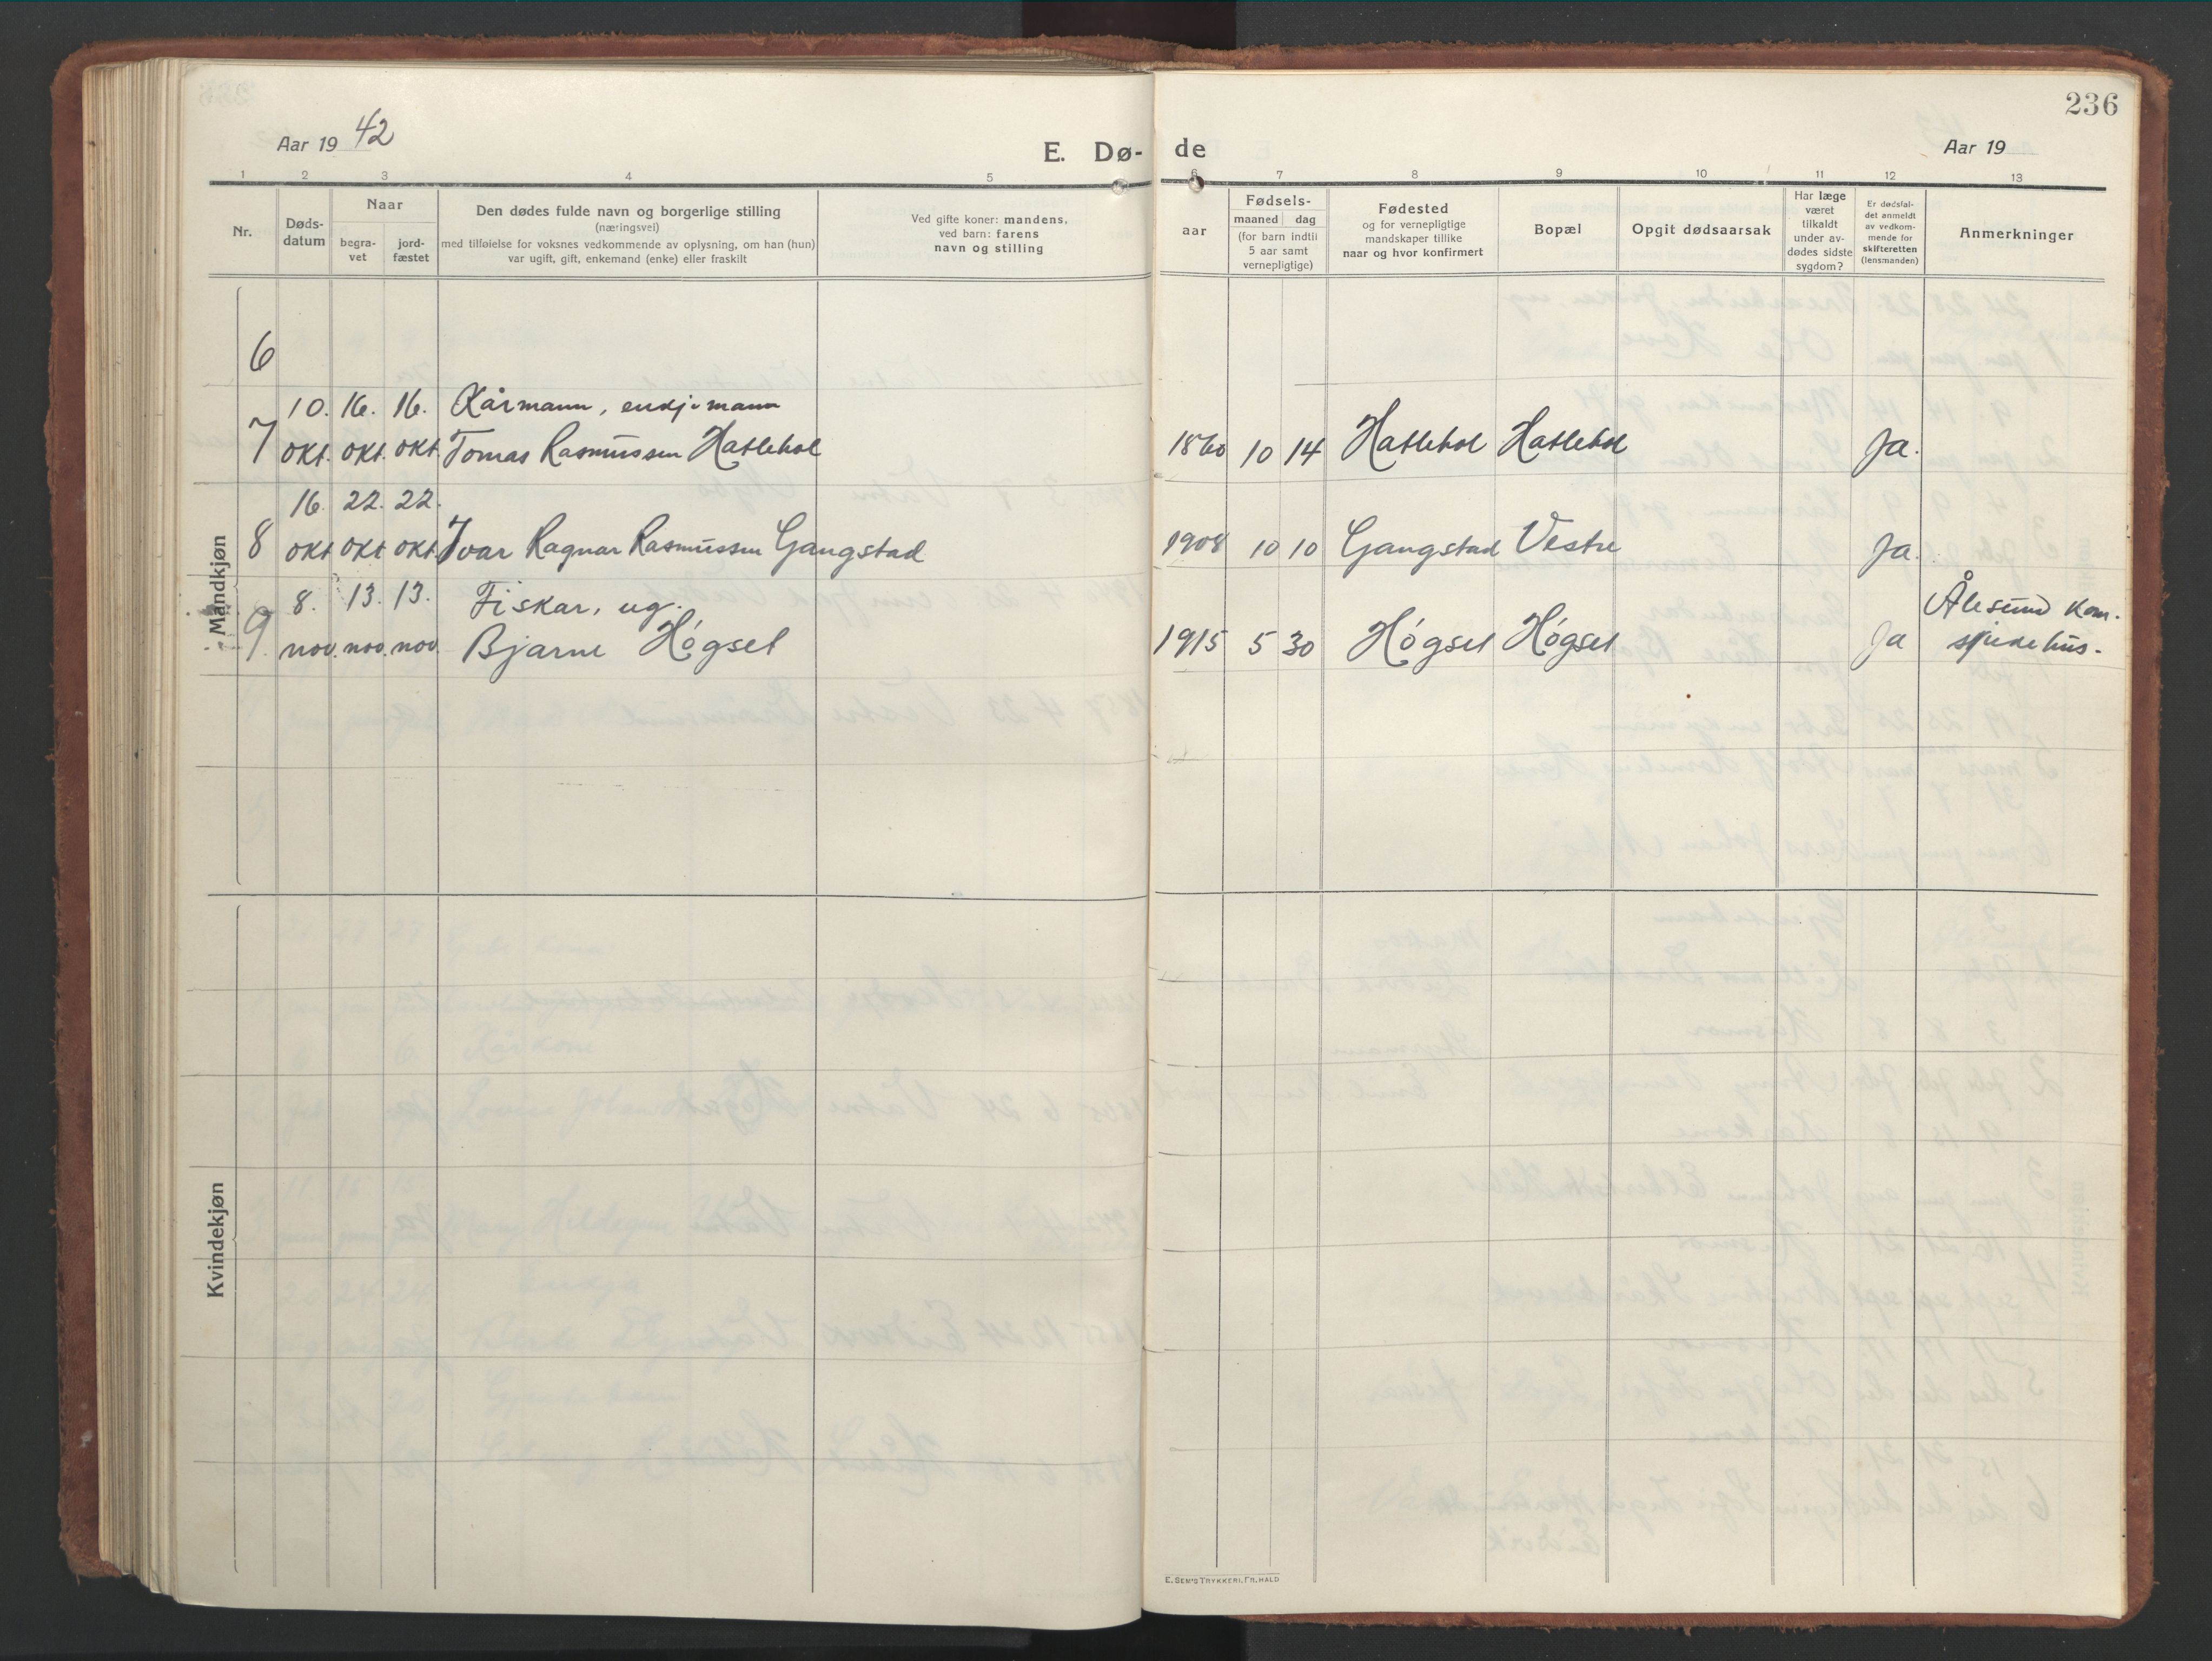 236
Aar 19 42
E. Dø- de
Aar 19
1 2 3 4 5 6 7 8 9 10 11 12 13
Nr.
Døds-
datum
Naar
begra-
vet
jord-
fæstet
Den dødes fulde navn og borgerlige stilling
(næringsvei)
med tilføielse for voksnes vedkommende av oplysning, om han (hun)
var ugift, gift, enkemand (enke) eller fraskilt
Ved gifte koner: mandens,
ved barn: farens
navn og stilling
aar
Fødsels-
maaned dag
(for barn indtil
5 aar samt
vernepligtige)
Fødested
og for vernepligtige
mandskaper tillike
naar og hvor konfirmert
Bopæl
Opgit dødsaarsak
Har læge
været
tilkaldt
under av-
dødes sidste
sygdom?
Er dødsfal-
det anmeldt
av vedkom-
mende for
skifteretten
(lensmanden)
Anmerkninger
Mandkjøn
6
10. 16. 16. Kårmann, enkjemann
7 okt. okt. okt. Tomas Rasmussen Hatlehol 1860 10 14 Hatlehol Hatlehol Ja.
16. 22. 22.
8 okt okt okt. Ivar Ragnar Rasmussen Gangstad 1908 10 10 Gangstad Vestre Ja.
8. 13. 13. Fiskar, ug. Ålesund kom.
9. nov. nov. nov. Bjarne Högset 1915 5 30 Högset Högset Ja sjukehus.
Kvindekjøn
E. SEM'S TRYKKERI. FR. HALD